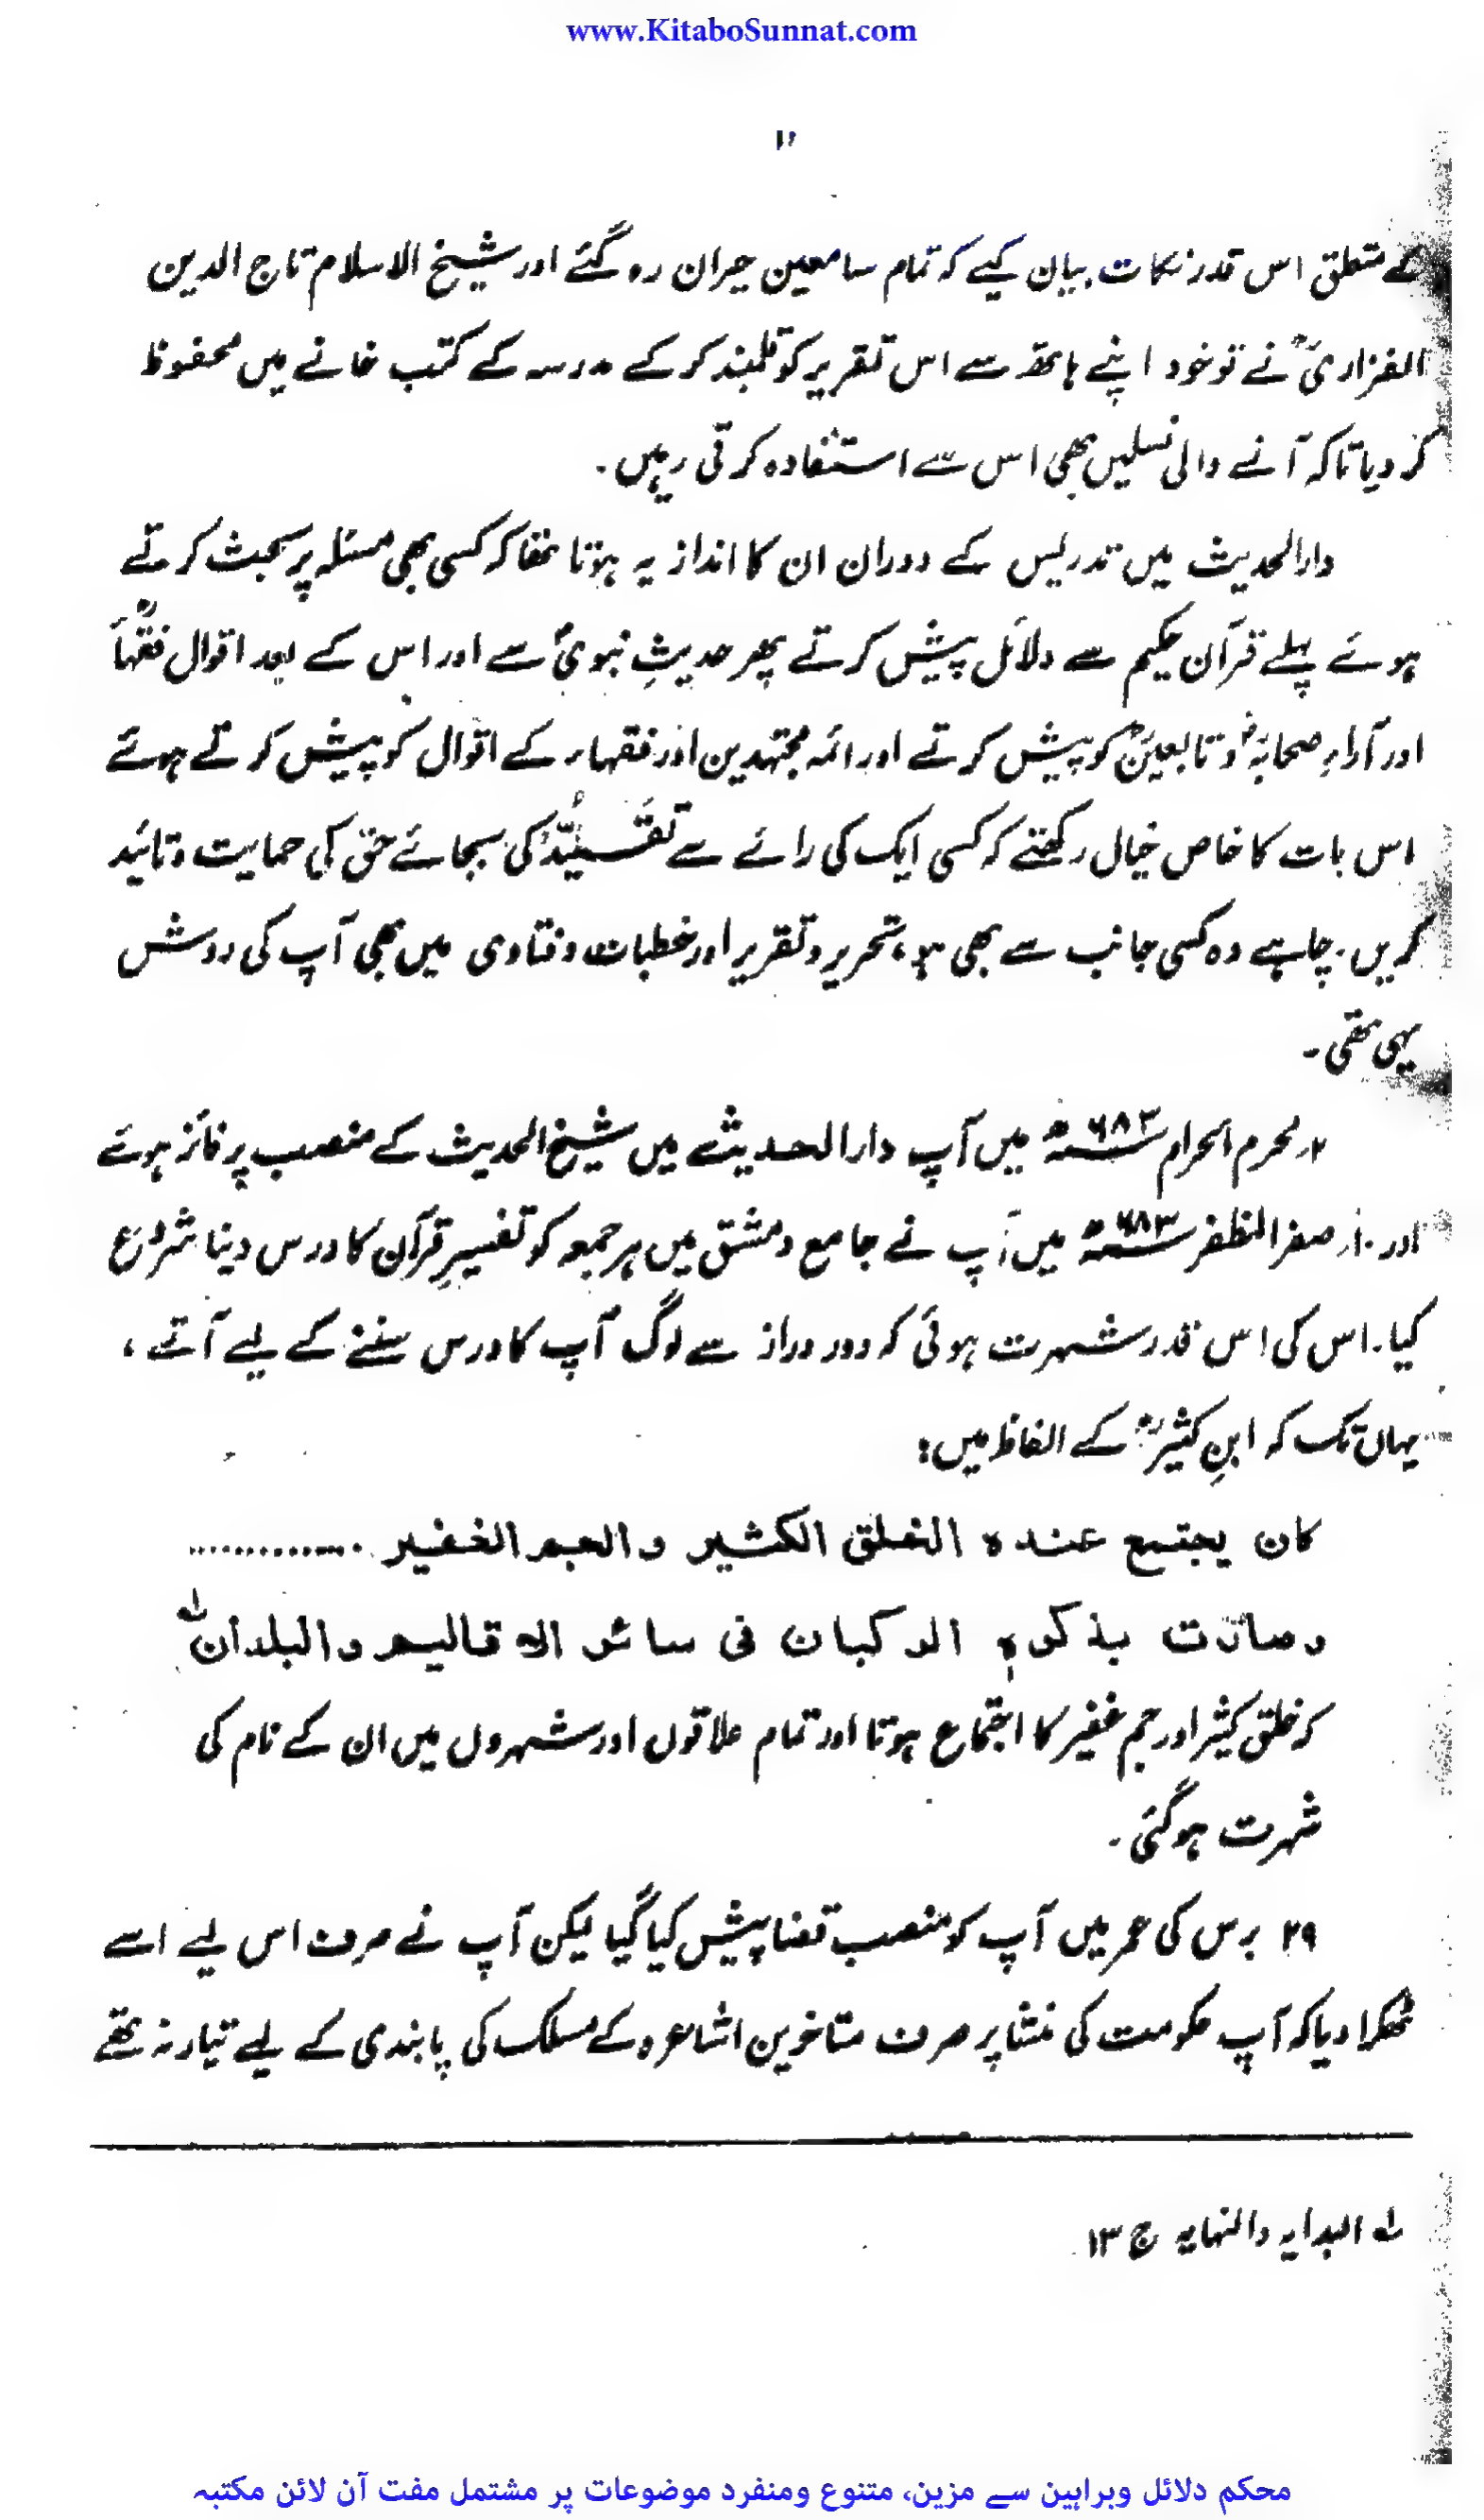 www.KitaboSunnat.com
۱۲
کے متعلق اس قدر نکات بیان کیے کہ تمام سامعین حیران رہ گئے اور شیخ الاسلام تاج الدین
الفزاریؒ نے تو خود اپنے ہاتھ سے اس تقریر کو قلمبند کر کے مدرسہ کے کتب خانے میں محفوظ
کر دیا تاکہ آنے والی نسلیں بھی اس سے استفادہ کرتی رہیں۔
دارالحدیث میں تدریس کے دوران ان کا انداز یہ ہوتا تھا کہ کسی بھی مسئلہ پر بحث کرتے
ہوئے پہلے قرآن حکیم سے دلائل پیش کرتے پھر حدیثِ نبویؐ سے اور اس کے بعد اقوال فقہاؒ
اور آراءِ صحابہؓ و تابعینؒ کو پیش کرتے اور ائمہ مجتہدین اور فقہاء کے اقوال کو پیش کرتے ہوئے
اس بات کا خاص خیال رکھتے کہ کسی ایک کی رائے سے تَقَیُّد کی بجائے حق کی حمایت و تائید
کریں۔ چاہے وہ کسی جانب سے بھی ہو، تحریر و تقریر اور خطبات و فتاوی میں بھی آپ کی روش
یہی تھی۔
۲ر محرم الحرام ۶۸۳ھ میں آپ دارالحدیث میں شیخ الحدیث کے منصب پر فائز ہوئے
اور ۱۰ر صفر المظفر ۶۸۳ھ میں آپ نے جامع دمشق میں ہر جمعہ کو تفسیرِ قرآن کا درس دینا شروع
کیا۔ اس کی اس قدر شہرت ہوئی کہ دور دراز سے لوگ آپ کا درس سننے کے لیے آتے،
یہاں تک کہ ابنِ کثیرؒ کے الفاظ میں:
کان یجتمع عندہ الخلق الکثیر والجم الغفیر ............
وصارت بذکرہ الرکبان فی سائر الاقالیم والبلدان لہ
کہ خلق کثیر اور جم غفیر کا اجتماع ہوتا اور تمام علاقوں اور شہروں میں ان کے نام کی
شہرت ہوگئی۔
۲۹ برس کی عمر میں آپ کو منصب قضا پیش کیا گیا لیکن آپ نے صرف اس لیے اسے
ٹھکرا دیا کہ آپ حکومت کی منشا پر صرف متاخرین اشاعرہ کے مسلک کی پابندی کے لیے تیار نہ تھے
لہ البدایہ والنہایہ ج ۱۳
محکم دلائل وبراہین سے مزین، متنوع ومنفرد موضوعات پر مشتمل مفت آن لائن مکتبہ